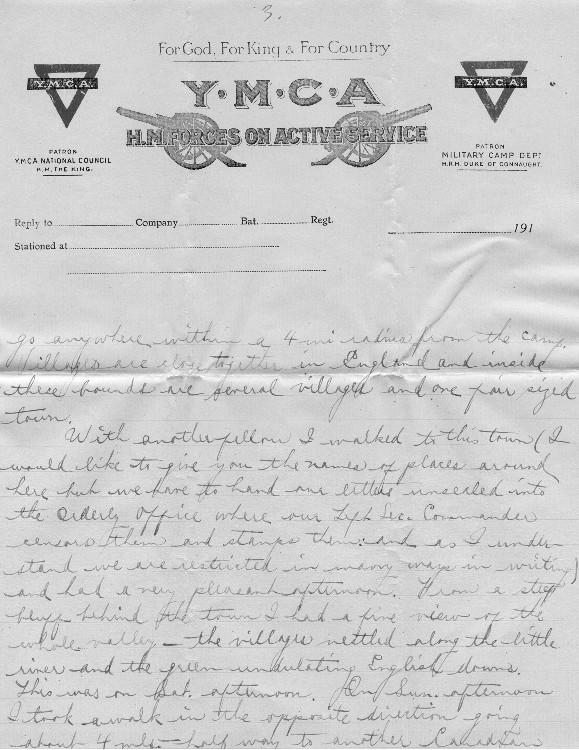 3.
For God, For King & For Country
Y.M.C.A
H.M. FORCES ON ACTIVE SERVICE
Y.M.C.A.
PATRON
Y.M.C.A NATIONAL COUNCIL
H.M. THE KING.
Y.M.C.A.
PATRON
MILITARY CAMP DEPT
H.R.H. DUKE OF CONNAUGHT.
Reply to Company Bat. Regt.
191
Stationed at
go anywhere within a 4 mi radius from the camp.
Villages are close together in England and inside
these bounds are several villages and one fair sized
town.
With another fellow I walked to this town (I
would like to give you the names of places around
here but we have to hand our letters unsealed into
the orderly office where our Commander
censors them and stamps them: and as I under-
stand we are restricted in many ways in writing)
and had a very pleasant afternoon. From a steep
bluff behind the town I had a fine view of the
whole valley - the villages nettled along the little
river and the green undulating English downs.
This was on Sat. afternoon. On Sun. afternoon
I took a walk in the opposite direction going
about 4 mls. - half way to another Canadian